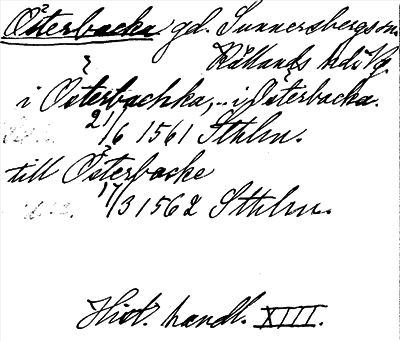 Österbacka gd. Sunnersbergs sn.
Kållands hd i Vg.
i Österbachka, .. i Österbacka.
21/6 1561 Sthlm.
till Österbacke
17/3 1562 Sthlm.
Hist. handl. XIII.